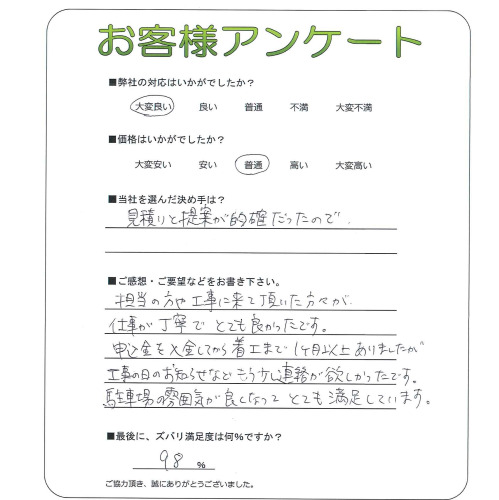 お客様アンケート
■弊社の対応はいかがでしたか?
大変良い 良い 普通 不満 大変不満
■価格はいかがでしたか?
大変安い 安い 普通 高い 大変高い
■当社を選んだ決め手は?
見積りと提案が的確だったので.
■ご感想・ご要望などをお書き下さい。
担当の方や工事に来て頂いた方々が、
仕事が丁寧でとても良かったです。
申込金を入金してから着工まで1ヶ月以上ありましたが
工事の日のお知らせなどもう少し連絡が欲しかったです。
駐車場の雰囲気が良くなってとても満足しています。
■最後に、ズバリ満足度は何%ですか?
98 %
ご協力頂き、誠にありがとうございました。